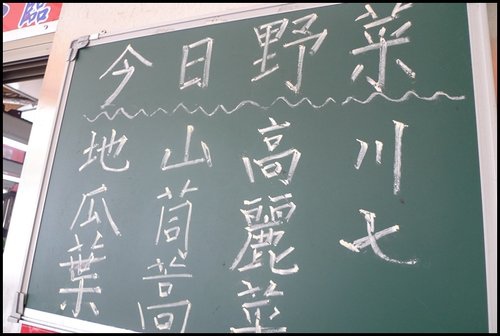 今日野菜
川七
高麗菜
山茼蒿
地瓜葉
臨